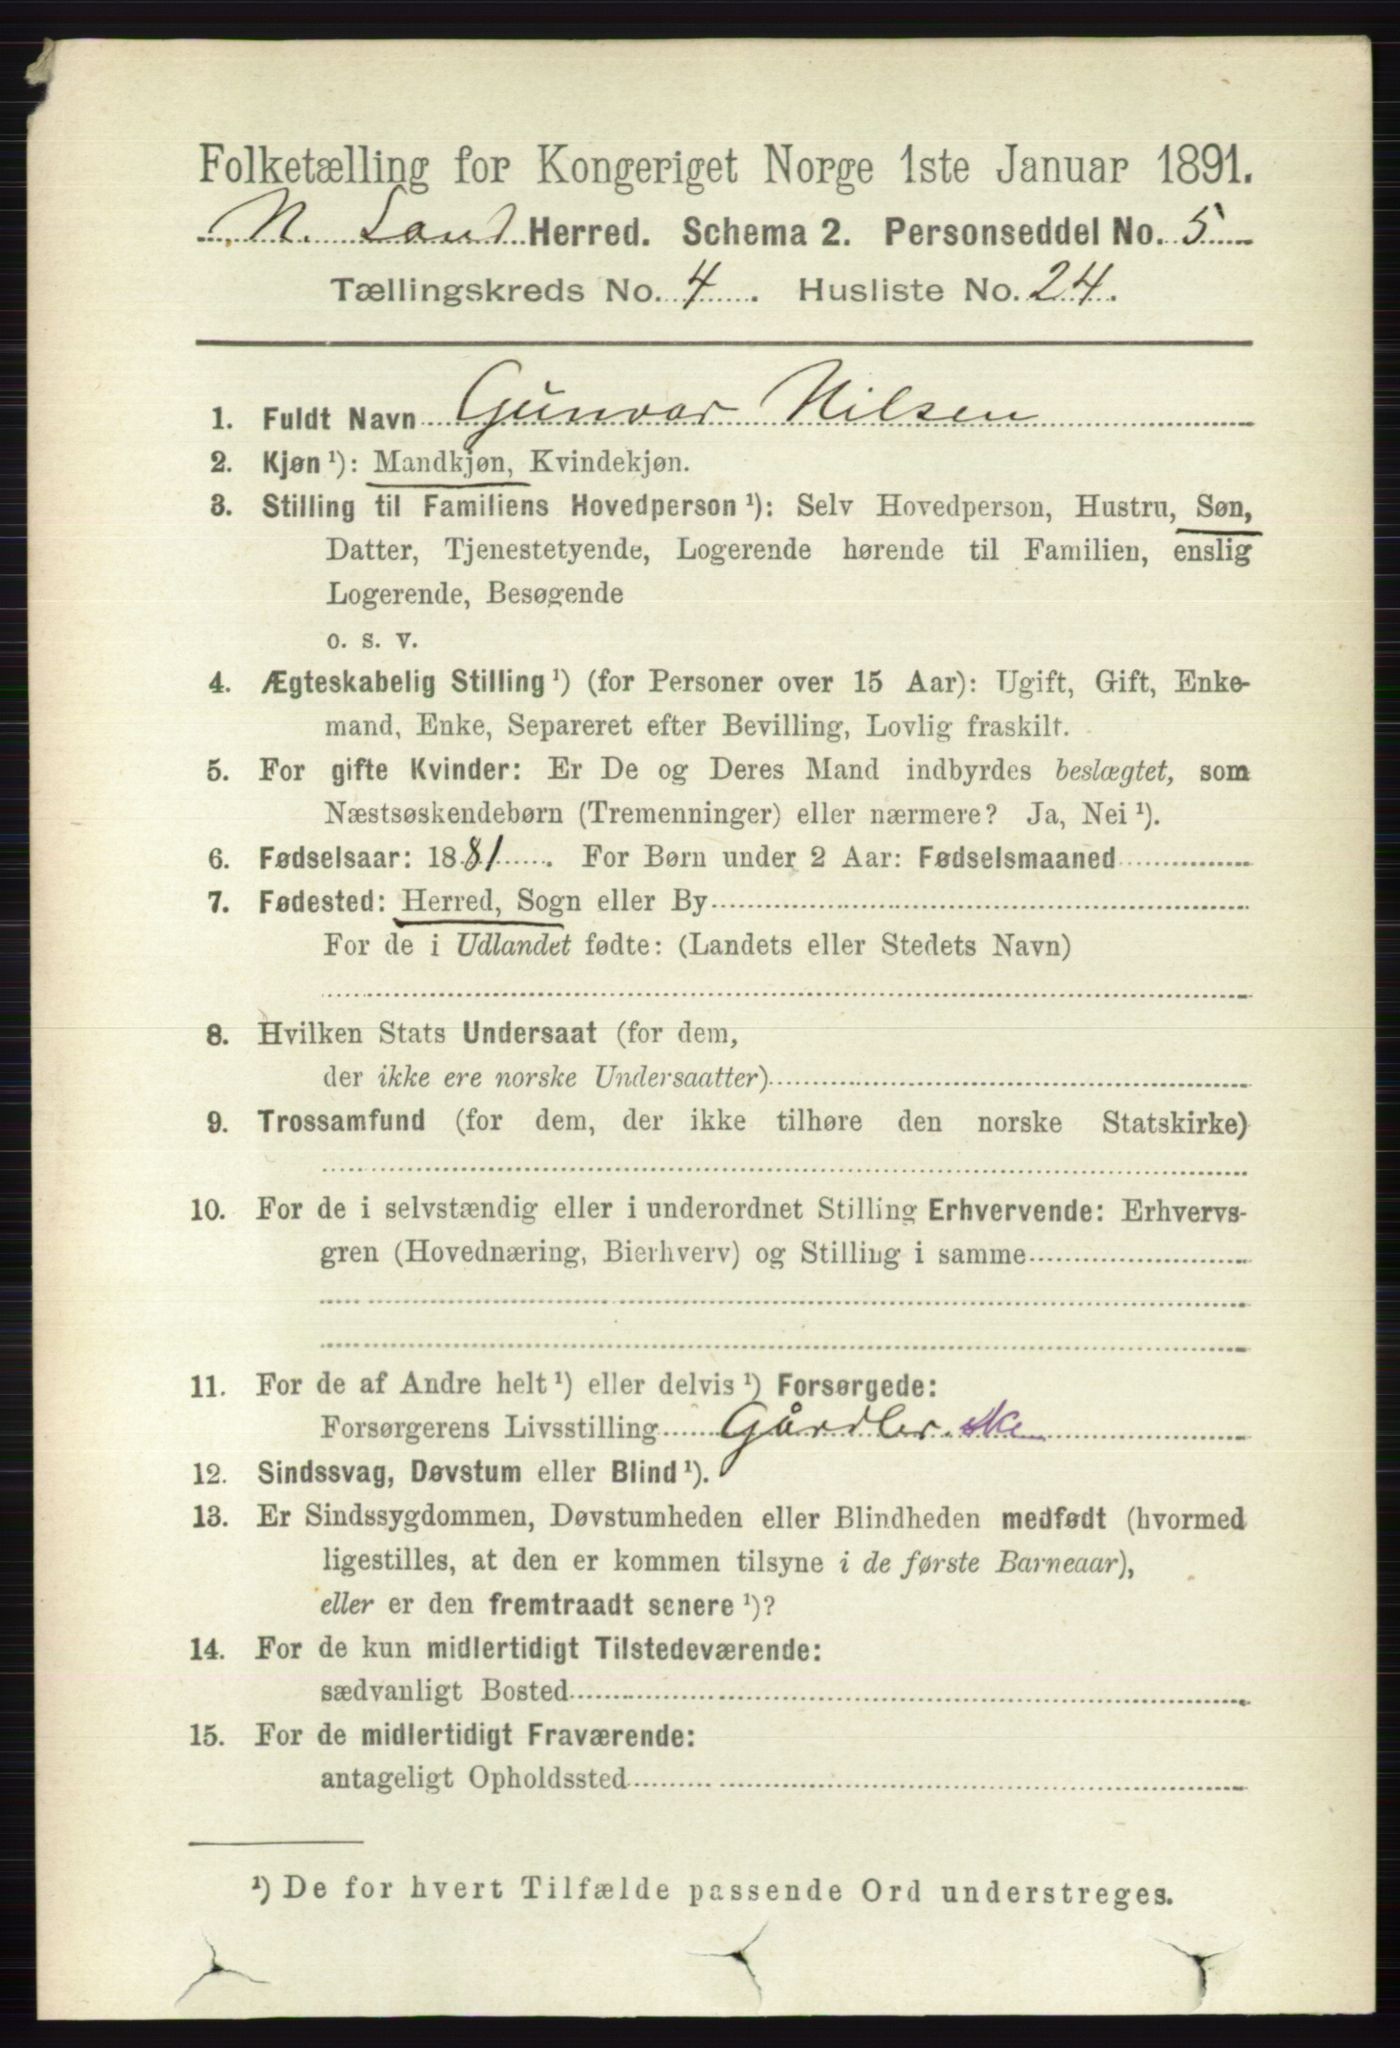 Folketælling for Kongeriget Norge 1ste Januar 1891.
N. Land Herred. Schema 2. Personseddel No. 5
Tællingskreds No. 4. Husliste No. 24.
1. Fuldt Navn Gunvar Nilsen
2. Kjøn ¹): Mandkjøn, Kvindekjøn.
3. Stilling til Familiens Hovedperson ¹): Selv Hovedperson, Hustru, Søn,
Datter, Tjenestetyende, Logerende hørende til Familien, enslig
Logerende, Besøgende
o. s. v.
4. Ægteskabelig Stilling ¹) (for Personer over 15 Aar): Ugift, Gift, Enke-
mand, Enke, Separeret efter Bevilling, Lovlig fraskilt.
5. For gifte Kvinder: Er De og Deres Mand indbyrdes beslægtet, som
Næstsøskendebørn (Tremenninger) eller nærmere? Ja, Nei ¹).
6. Fødselsaar: 1881. For Børn under 2 Aar: Fødselsmaaned
7. Fødested: Herred, Sogn eller By
For de i Udlandet fødte: (Landets eller Stedets Navn)
8. Hvilken Stats Undersaat (for dem,
der ikke ere norske Undersaatter)
9. Trossamfund (for dem, der ikke tilhøre den norske Statskirke)
10. For de i selvstændig eller i underordnet Stilling Erhvervende: Erhvervs-
gren (Hovednæring, Bierhverv) og Stilling i samme
11. For de af Andre helt ¹) eller delvis ¹) Forsørgede:
Forsørgerens Livsstilling Gårdbr.
12. Sindssvag, Døvstum eller Blind ¹).
13. Er Sindssygdommen, Døvstumheden eller Blindheden medfødt (hvormed
ligestilles, at den er kommen tilsyne i de første Barneaar),
eller er den fremtraadt senere ¹)?
14. For de kun midlertidigt Tilstedeværende:
sædvanligt Bosted
15. For de midlertidigt Fraværende:
antageligt Opholdssted
¹) De for hvert Tilfælde passende Ord understreges.